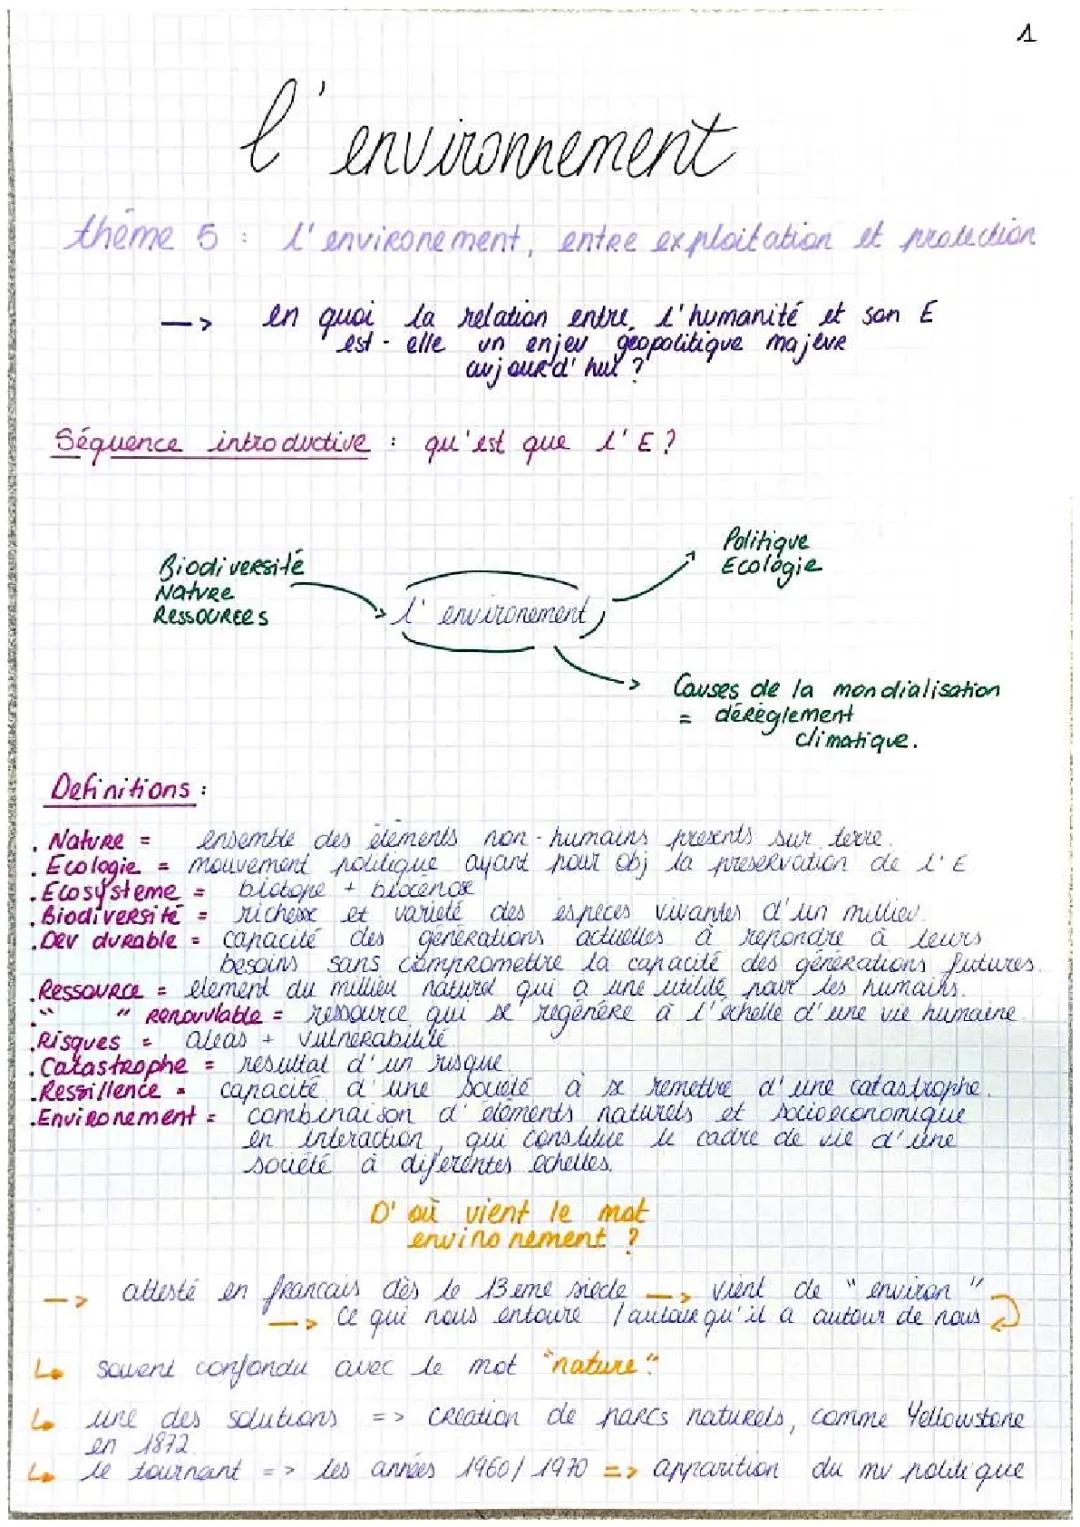 1
l'environnement
thème 5 : l'environement, entre exploitation et protection
--> en quoi la relation entre l'humanité et son E
est-elle un enjeu géopolitique majeur
aujourd'hui ?
Séquence introductive : qu'est que l'E ?
Politique
Ecologie
Biodiversité
Nature
Ressources
l'environement
Causes de la mondialisation
= dérèglement
climatique.
Definitions :
. Nature = ensemble des éléments non-humains présents sur terre.
. Ecologie = mouvement politique ayant pour obj la préservation de l'E
. Ecosystème = biotope + biocénose
. Biodiversité = richesse et variété des espèces vivantes d'un millieu.
. Dev durable = capacité des générations actuelles à repondre à leurs
besoins sans compromettre la capacité des générations futures.
. Ressource = element du millieu naturel qui a une utilité pour les humains.
. " " Renouvlable = ressource qui se régénère à l'échelle d'une vie humaine.
. Risques = aleas + vulnerabilité
. Catastrophe = resultat d'un risque
. Ressillence = capacité d'une société à se remettre d'une catastrophe.
. Environement = combinaison d'eléments naturels et socioeconomique
en interaction, qui constitue le cadre de vie d'une
société à diferentes echelles.
D'où vient le mot
environement ?
--> attesté en francais dès le 13 eme siècle --> vient de "environ"
--> ce qui nous entoure / autour qu'il a autour de nous
↳ souvent confondu avec le mot "nature".
↳ une des solutions => création de parcs naturels, comme Yellowstone
en 1872.
↳ le tournant => les années 1960/1970 => apparition du mv politique